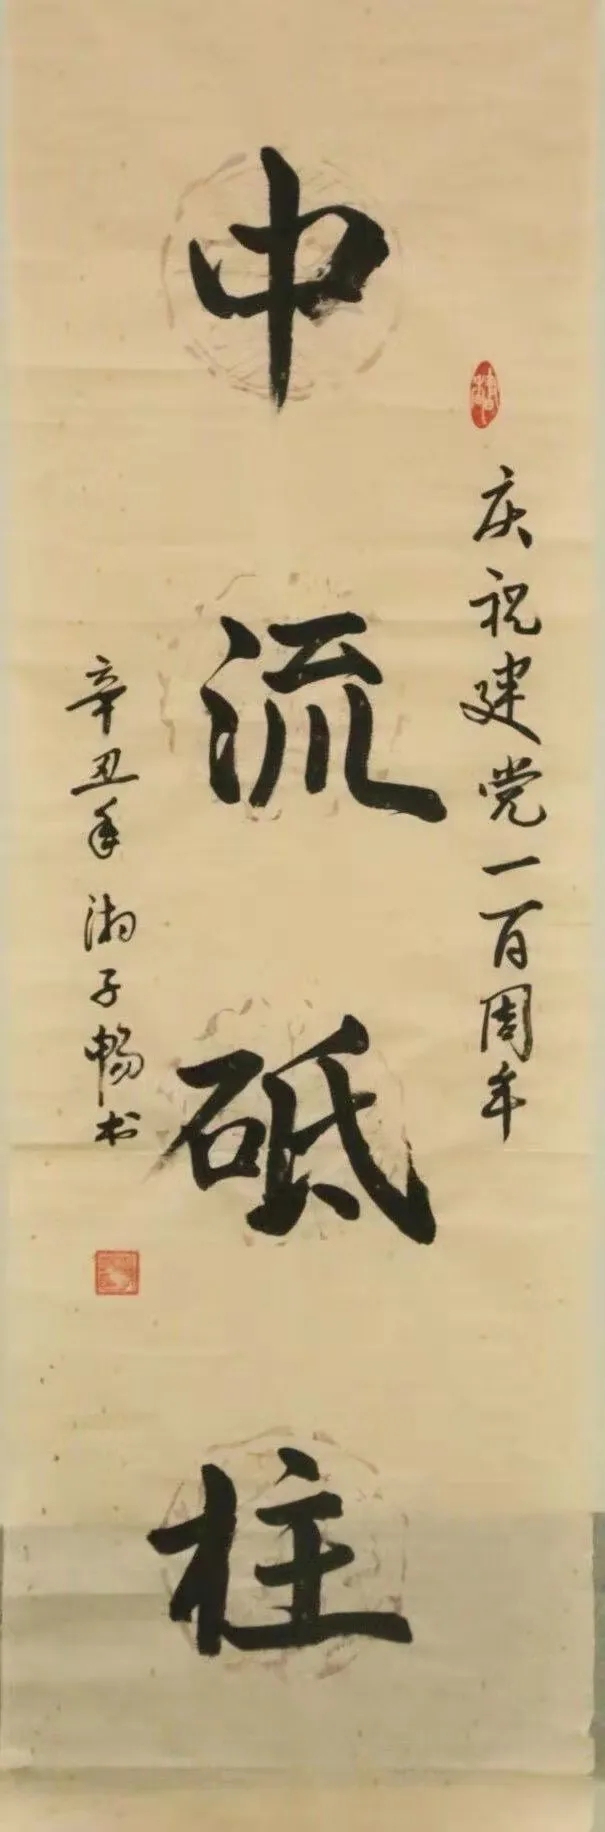 庆祝建党一百周年
中流砥柱
辛丑年 湘子畅书